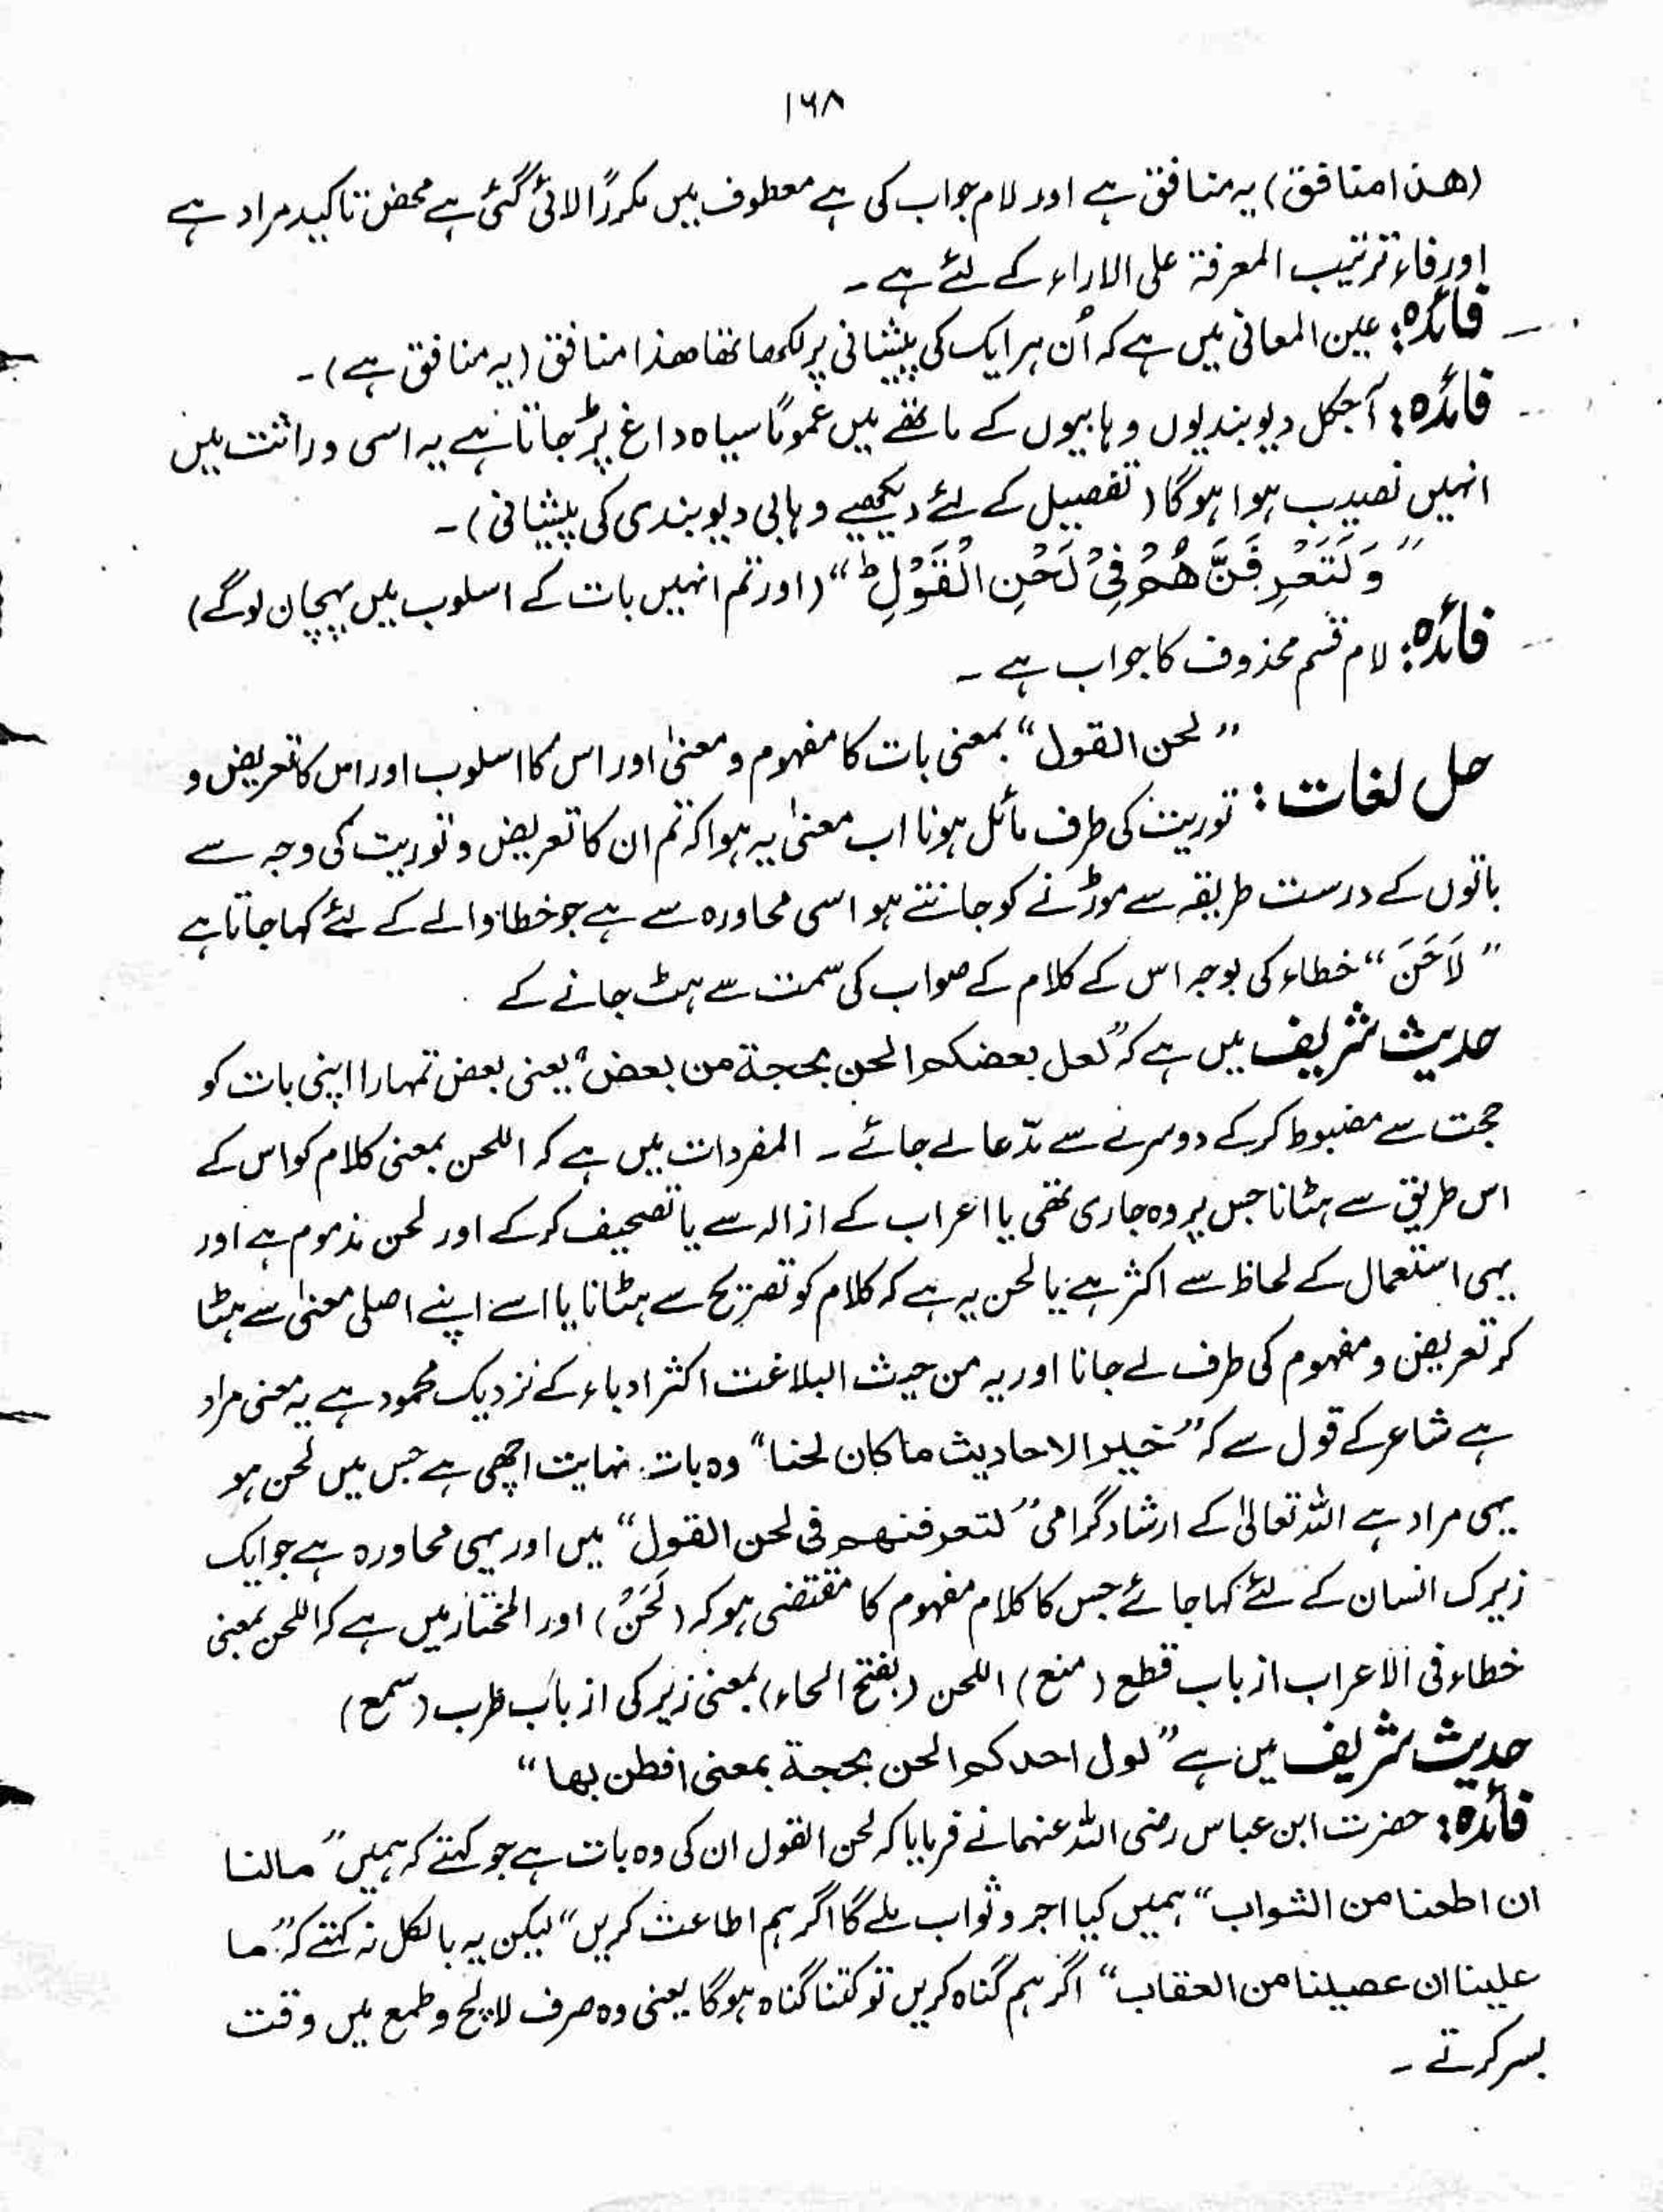 ۱۶۸
(ھذا منافق) یہ منافق ہے اور لام جواب کی ہے معطوف میں مکررًا لائی گئی ہے محض تاکید مراد ہے
اور فاء ترتیب المعرفۃ علی الاراء کے لئے ہے ۔
فائدہ: عین المعانی میں ہے کہ اُن ہر ایک کی پیشانی پر لکھا تھا ھذا منافق (یہ منافق ہے) ۔
فائدہ: آجکل دیوبندیوں وہابیوں کے ماتھے میں عمومًا سیاہ داغ پڑ جاتا ہے یہ اسی وراثت میں
انہیں نصیب ہوا ہوگا (تفصیل کے لئے دیکھیے وہابی دیوبندی کی پیشانی) ۔
”وَلَتَعْرِفَنَّ هُمْ فِیْ لَحْنِ الْقَوْلِ ط“ (اور تم انہیں بات کے اسلوب میں پہچان لوگے)
فائدہ: لام قسم محذوف کا جواب ہے ۔
حل لغات: ”لحن القول“ بمعنی بات کا مفہوم و معنیٰ اور اس کا اسلوب اور اس کا تعریض و
توریت کی طرف مائل ہونا اب معنیٰ یہ ہوا کہ تم ان کا تعریض و توریت کی وجہ سے
باتوں کے درست طریقہ سے موڑنے کو جانتے ہو اسی محاورہ سے ہے جو خطا والے کے لئے کہا جاتا ہے
”لَاحَنَ“ خطاء کی بوجہ اس کے کلام کے صواب کی سمت سے ہٹ جانے کے
حدیث شریف میں ہے کہ ”لعل بعضکم الحن بحجۃ من بعض“ یعنی بعض تمہارا اپنی بات کو
حجت سے مضبوط کرکے دوسرے سے مدّعا لے جائے ۔ المفردات میں ہے کہ اللحن بمعنی کلام کو اس کے
اس طریق سے ہٹانا جس پر وہ جاری تھی یا اعراب کے ازالہ سے یا تصحیف کرکے اور لحن مذموم ہے اور
یہی استعمال کے لحاظ سے اکثر ہے یا لحن یہ ہے کہ کلام کو تصریح سے ہٹانا یا اسے اپنے اصلی معنیٰ سے ہٹا
کر تعریض و مفہوم کی طرف لے جانا اور یہ من حیث البلاغت اکثر ادباء کے نزدیک محمود ہے یہ معنی مراد
ہے شاعر کے قول سے کہ ”خیر الاحادیث ما کان لحنا“ وہ بات نہایت اچھی ہے جس میں لحن ہو
یہی مراد ہے اللہ تعالیٰ کے ارشاد گرامی ”لتعرفنھم فی لحن القول“ میں اور یہی محاورہ ہے جو ایک
زیرک انسان کے لئے کہا جائے جس کا کلام مفہوم کا مقتضی ہو کہ (لَحَنُ) اور المختار میں ہے کہ اللحن بمعنی
خطاء فی الاعراب از باب قطع (منع) اللحن (بفتح الحاء) بمعنی زیرکی از باب طرب (سمع)
حدیث شریف میں ہے ”لول احدکم الحن بحجۃ بمعنی افطن بھا“
فائدہ: حضرت ابن عباس رضی اللہ عنہما نے فرمایا کہ لحن القول ان کی وہ بات ہے جو کہتے کہ ہمیں ”مالنا
ان اطعنا من الثواب“ ہمیں کیا اجر و ثواب ملے گا اگر ہم اطاعت کریں“ لیکن یہ بالکل نہ کہتے کہ ”ما
علینا ان عصینا من العقاب“ اگر ہم گناہ کریں تو کتنا گناہ ہوگا یعنی وہ صرف لالچ و طمع میں وقت
بسر کرتے ۔